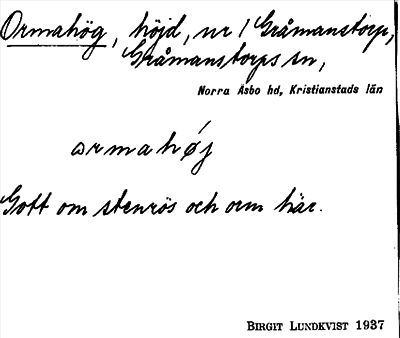 Ormahög, höjd, nr 1 Gråmanstorp,
Gråmanstorps sn,
Norra Åsbo hd, Kristianstads län
ormahøj
Gott om stenrös och orm här.
BIRGIT LUNDKVIST 1937